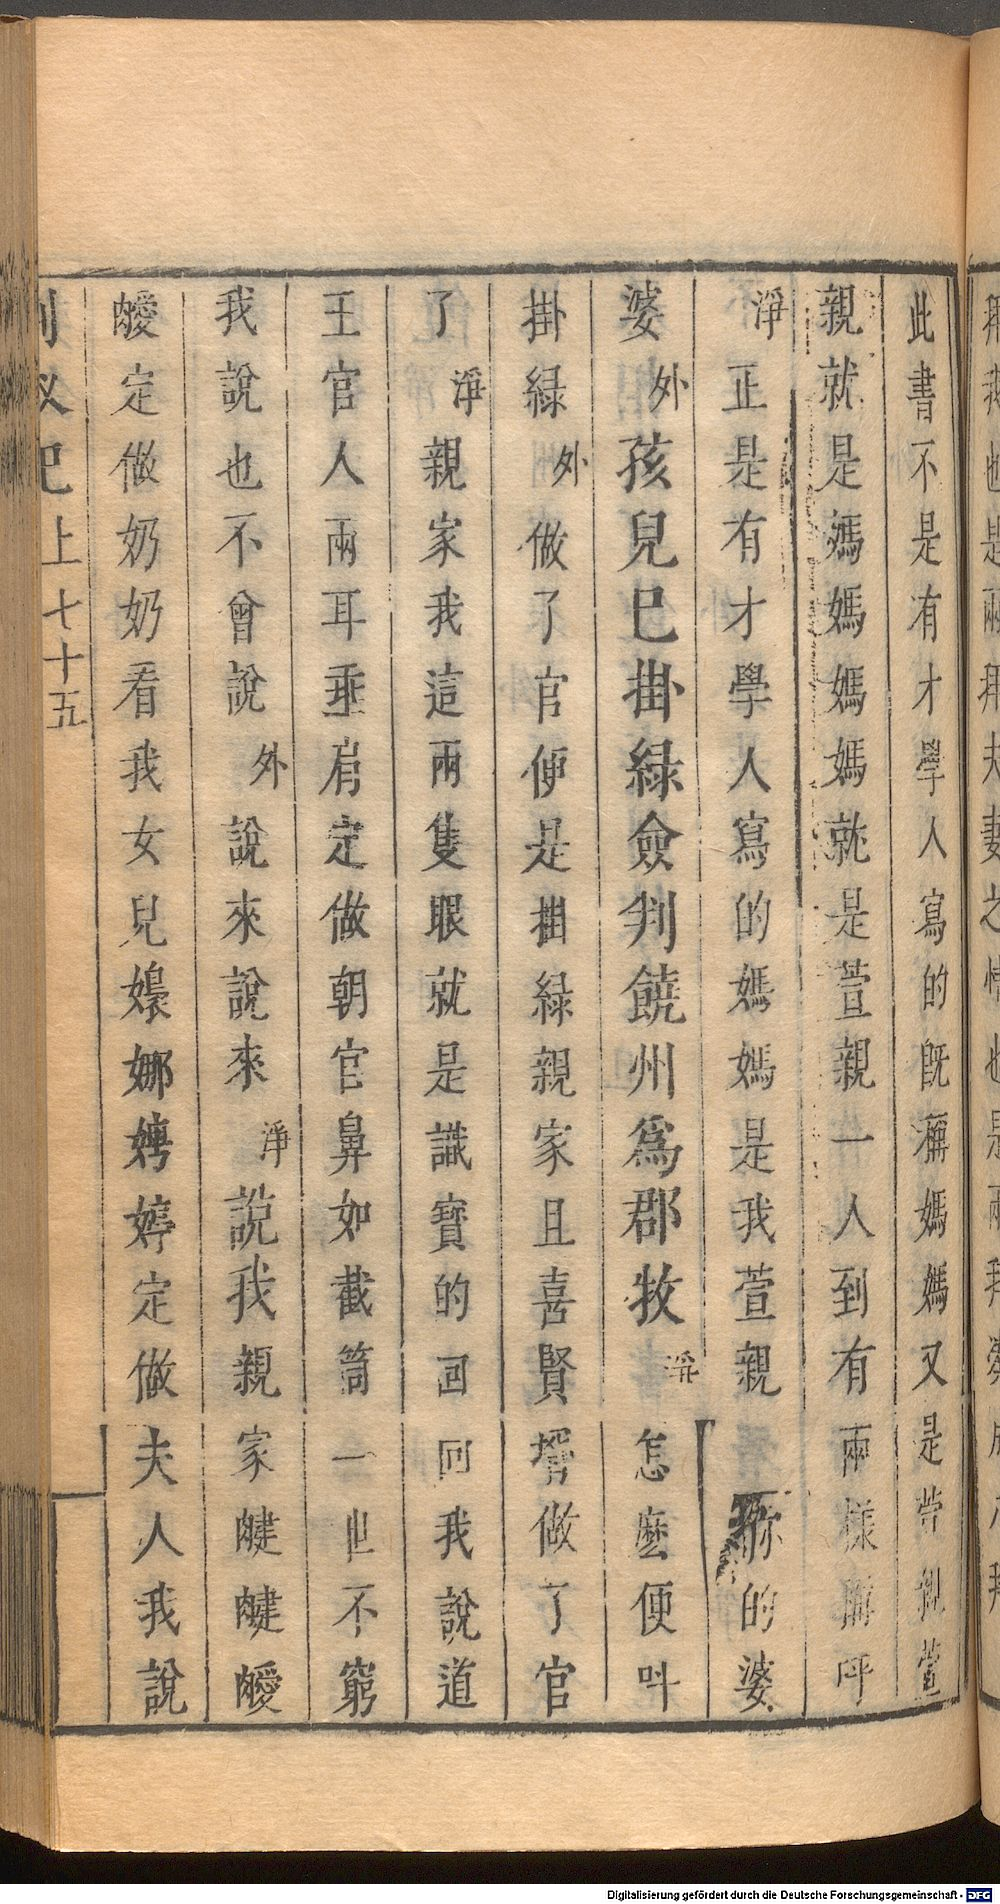 此書不是有才學人寫的旣稱媽媽又是萱親萱
親就是媽媽媽媽就是萱親一人到有兩樣稱呼
淨正是有才學人寫的媽媽是我萱親你的婆
婆外孩兒已掛綠僉判饒州爲郡牧淨怎麽便呌
掛綠外做了官便是掛綠親家且喜賢壻做了官
了淨親家我這兩隻眼就是識寶的回回我說道
王官人兩耳垂肩定做朝官鼻如截筒一世不窮
我說也不曾說外說來說來淨說我親家
定做奶奶看我女兒嬝娜娉婷定做夫人我說
上七十五
Digitalisierung gefördert durch die Deutsche Forschungsgemeinschaft - DFG